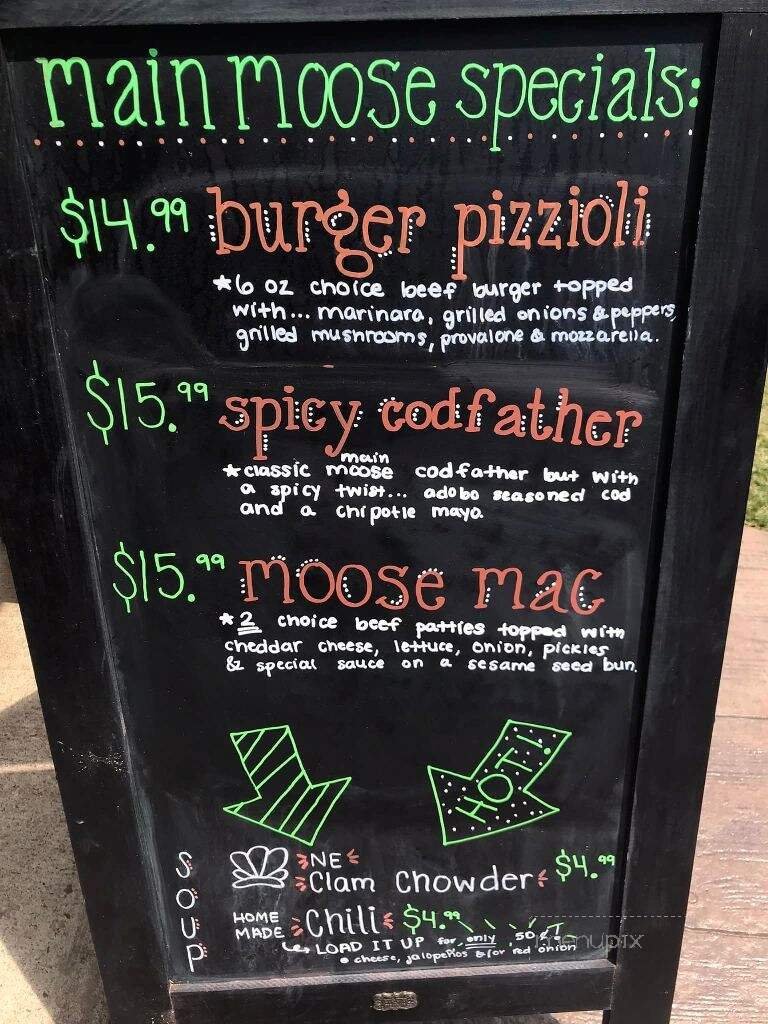 main moose specials:
$14.99 burger pizzioli
*6 oz choice beef burger topped
with... marinara, grilled onions & peppers,
grilled mushrooms, provalone & mozzarella.
$15.99 spicy codfather
main
*classic moose codfather but with
a spicy twist... adobo seasoned cod
and a chipotle mayo
$15.99 moose mac
*2 choice beef patties topped with
cheddar cheese, lettuce, onion, pickles
& special sauce on a sesame seed bun.
HOT!
SOUP
NE
Clam Chowder $4.99
HOME MADE Chili $4.99
LOAD IT UP for only 50¢!
• cheese, jalopeños &/or red onion
menupix